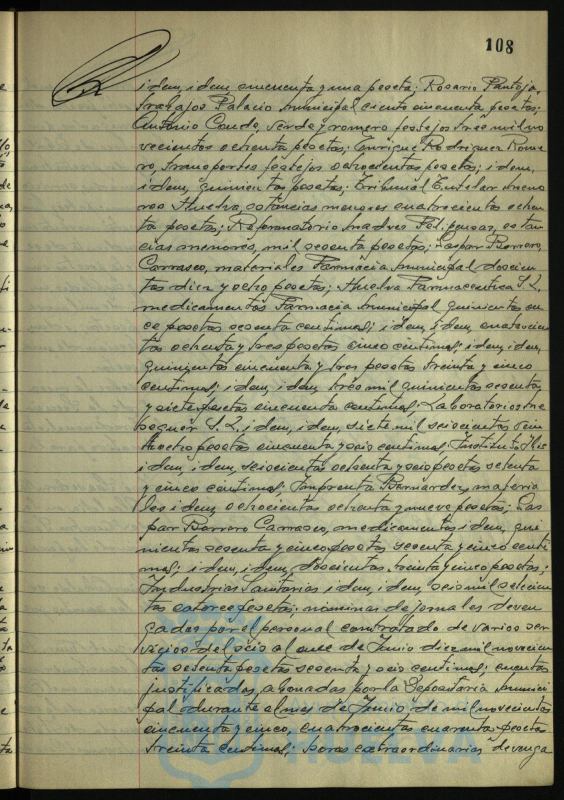 108
idem, idem cincuenta y una peseta; Rosario Pantoja,
trabajos Palacio Municipal ciento cincuenta pesetas;
Antonio Conde, verde y romero festejos tres mil no
vecientas ochenta pesetas; Enrique Rodriguez Rome
ro, transportes festejos ochocientas pesetas; idem,
idem, quinientas pesetas; Tribunal Tutelar meno
res Huelva, estancias menores cuatrocientas ochen
ta pesetas; Reformatorio Madres estan
cias menores, mil sesenta pesetas; Gaspar Barrero
Carrasco, materiales Farmacia Municipal doscien
tas diez y ocho pesetas; Huelva Farmaceutica S.L.
medicamentos Farmacia Municipal quinientas on
ce pesetas sesenta centimos; idem, idem, cuatrocien
tas ochenta y tres pesetas cinco centimos; idem, idem,
quinientas cincuenta y tres pesetas treinta y cinco
centimos; idem, idem, tres mil quinientas sesenta
y siete pesetas cincuenta centimos; Laboratorios
S.L. idem, idem, siete mil seiscientas
ocho pesetas cincuenta y seis centimos; Instituto
idem, idem, seiscientas ochenta y seis pesetas setenta
y cinco centimos; Imprenta Bernardez, materia
les idem, ochocientas ochenta y nueve pesetas; Gas
par Barrero Carrasco, medicamentos idem, qui
nientas sesenta y cinco pesetas sesenta y cinco centi
mos; idem, idem, doscientas treinta y cinco pesetas;
Industrias Sanitarias idem, idem, seis mil setecien
tas catorce pesetas; nominas de jornales deven
gadas por el personal contratado de varios ser
vicios del seis al once de Junio diez mil novecien
tas sesenta pesetas sesenta y seis centimos; cuentas
justificadas, abonadas por la Depositaria Munici
pal durante el mes de Junio de mil novecientos
cincuenta y cinco, cuatrocientas cuarenta pesetas
treinta centimos; horas extraordinarias devenga
HUELVA